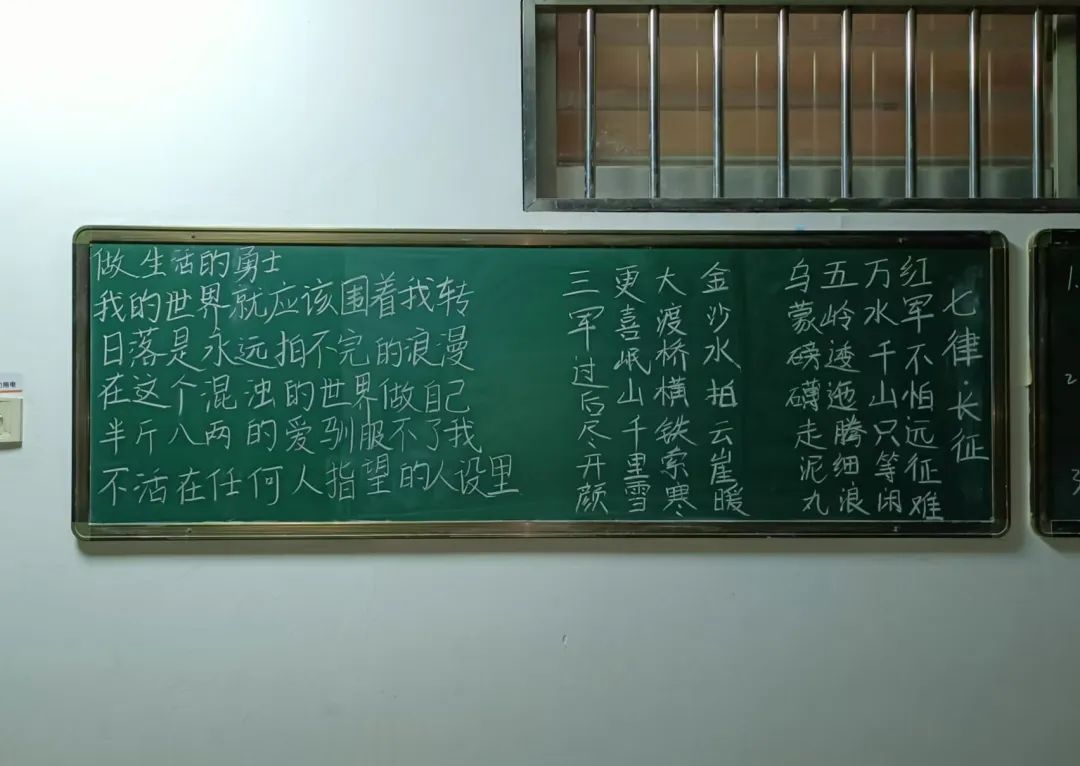 做生活的勇士
我的世界就应该围着我转
日落是永远拍不完的浪漫
在这个混浊的世界做自己
半斤八两的爱驯服不了我
不活在任何人指望的人设里
七律·长征
红军不怕远征难
万水千山只等闲
五岭逶迤腾细浪
乌蒙磅礴走泥丸
金沙水拍云崖暖
大渡桥横铁索寒
更喜岷山千里雪
三军过后尽开颜
1.
2
3
用电